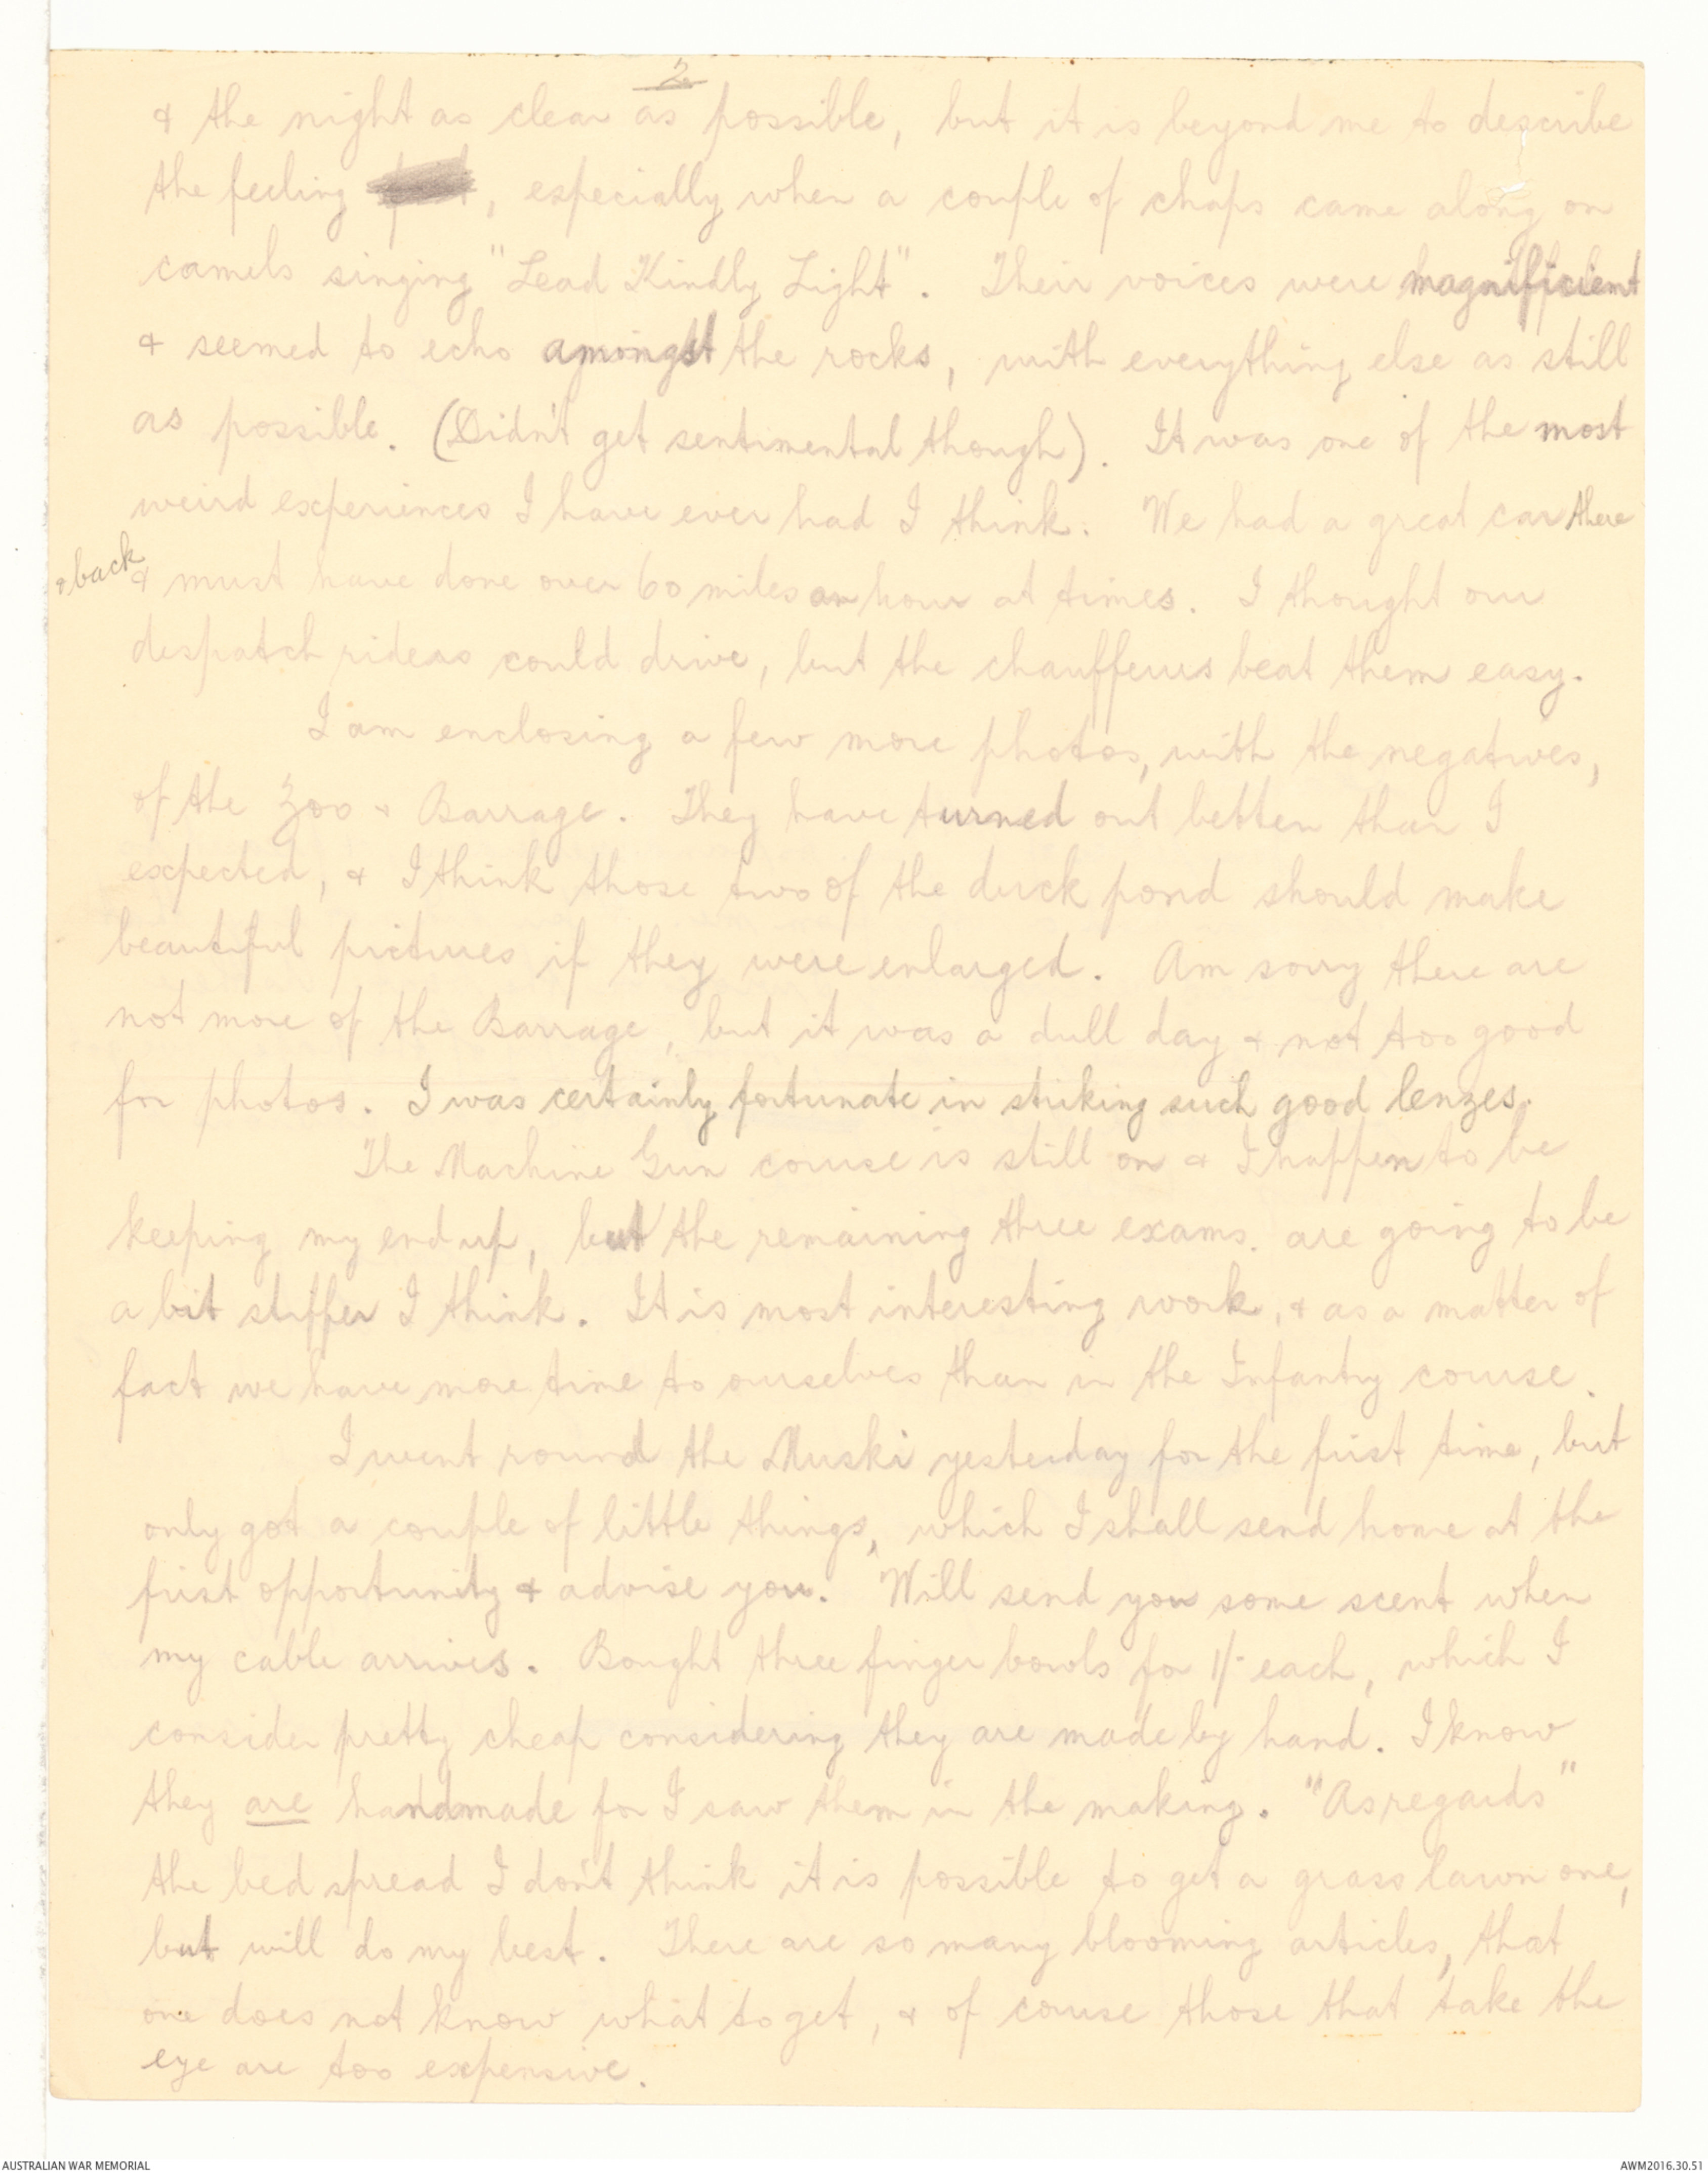 2
& the night as clear as possible, but it is beyond me to describe
the feeling , especially when a couple of chaps came along on
camels singing "Lead Kindly Light". Their voices were magnificient
& seemed to echo amongst the rocks, with everything else as still
as possible. (Didn't get sentimental though). It was one of the most
weird experiences I have ever had I think. We had a great car there
& back & must have done over 60 miles an hour at times. I thought our
despatch riders could drive, but the chauffeurs beat them easy.
I am enclosing a few more photos, with the negatives,
of the Zoo & Barrage. They have turned out better than I
expected, & I think those two of the duck pond should make
beautiful pictures if they were enlarged. Am sorry there are
not more of the Barrage, but it was a dull day & not too good
for photos. I was certainly fortunate in striking such good lenzes.
The Machine Gun course is still on & I happen to be
keeping my end up, but the remaining three exams. are going to be
a bit stiffer I think. It is most interesting work, & as a matter of
fact we have more time to ourselves than in the Infantry course.
I went round the Muski yesterday for the first time, but
only got a couple of little things, which I shall send home at the
first opportunity & advise you. Will send you some scent when
my cable arrives. Bought three finger bowls for 1/- each, which I
consider pretty cheap considering they are made by hand. I know
they are handmade for I saw them in the making. "As regards"
the bed spread I don't think it is possible to get a grass lawn one,
but will do my best. There are so many blooming articles, that
one does not know what to get, & of course those that take the
eye are too expensive.
AUSTRALIAN WAR MEMORIAL
AWM2016.30.51